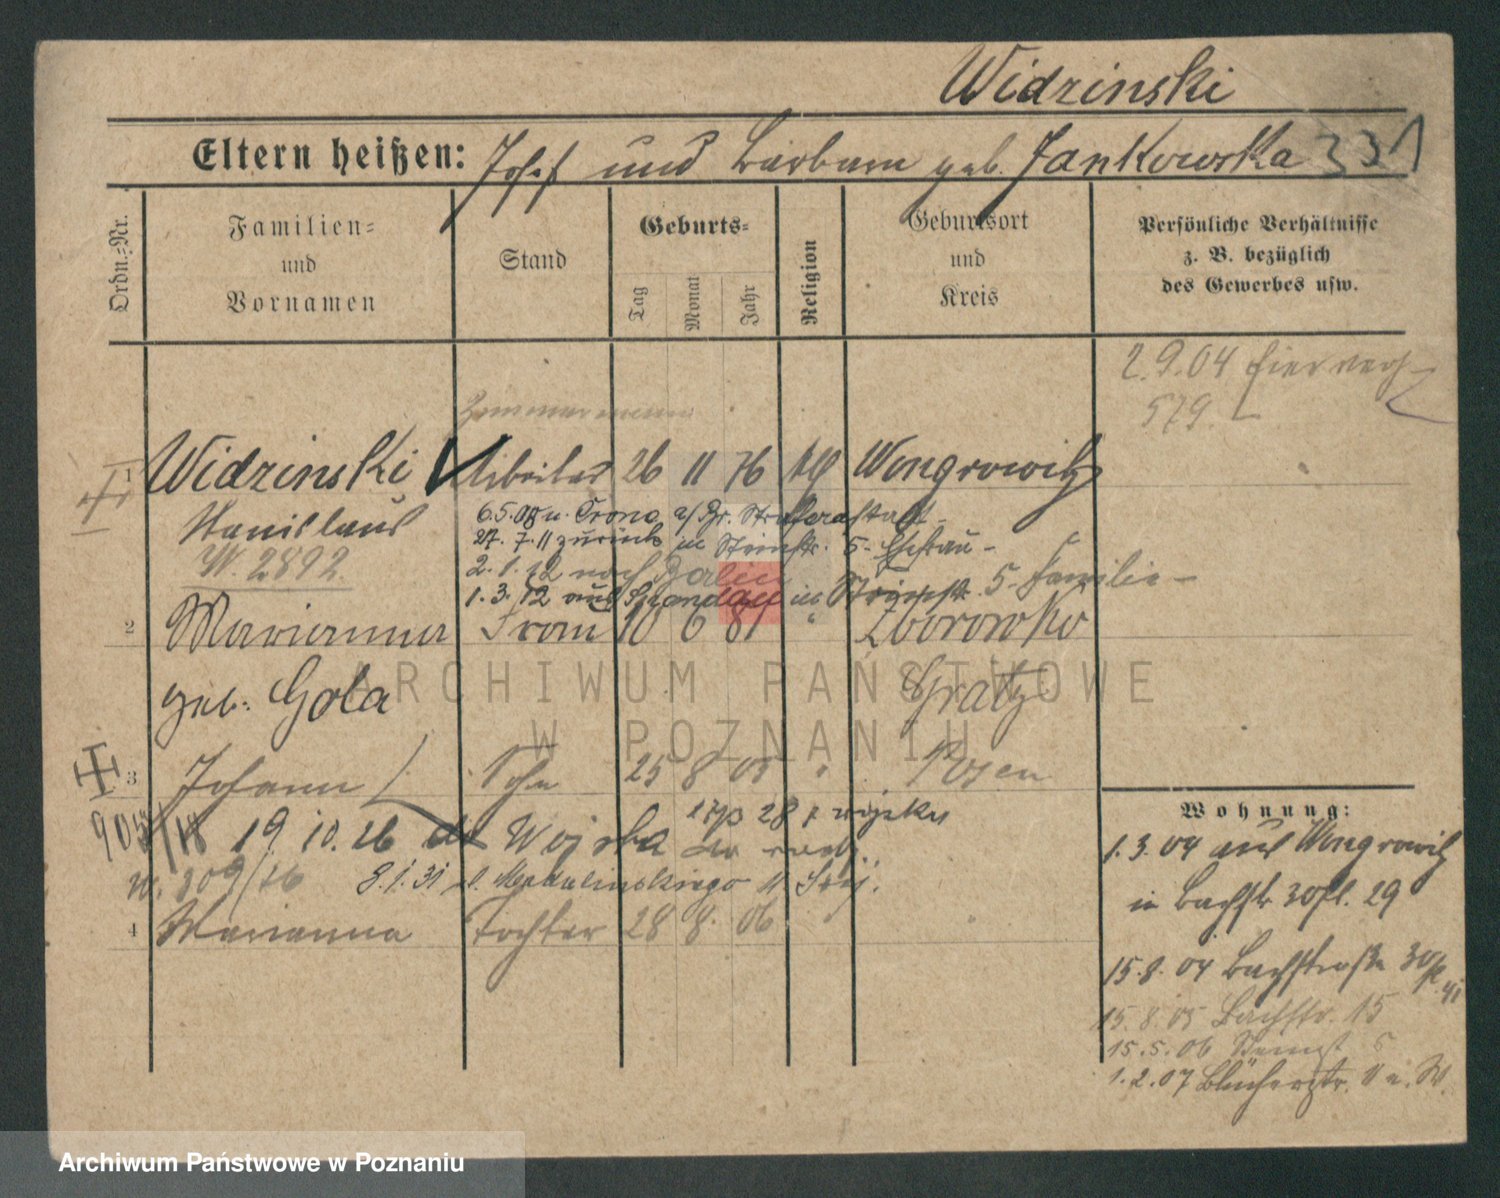 Widzinski
Eltern heißen: Josef und Barbara geb. Jankowska 331
Ordn.-Nr.
Familien-
und
Vornamen
Stand
Geburts-
Tag
Monat
Jahr
Religion
Geburtsort
und
Kreis
Persönliche Verhältnisse
z. B. bezüglich
des Gewerbes usw.
2.9.04 hier
579.
Zimmermann
1 Widzinski Arbeiter 26 11 76 Wongrowitz
Stanislaus
6.5.08 n. Crone a/Br. Strafanstalt
W. 2892
27. 7. 11 zurück in Steinstr. 5. Ehefrau -
2. 1. 12 nach Berlin
1. 3. 12 aus Spandau in Steinstr. 5. Familie -
2 Marianna Frau 10 6 81 " Zborowko
geb. Gola Gratz
3 Johann Sohn 25 8 05 " Posen
905/18 19 10. 26 do Wojska
W. 209/26 8.1.31
4 Marianna Tochter 28 8. 06
Wohnung:
1.3.04 aus Wongrowitz
in Bachstr 30 pl. 29
15.8.04 Bachstraße 30
15.8.05 Bachstr. 15
15.5.06 Steinst 5
1.2.07 Blücherstr. 11 n. W.
ARCHIWUM PAŃSTWOWE
W POZNANIU
Archiwum Państwowe w Poznaniu